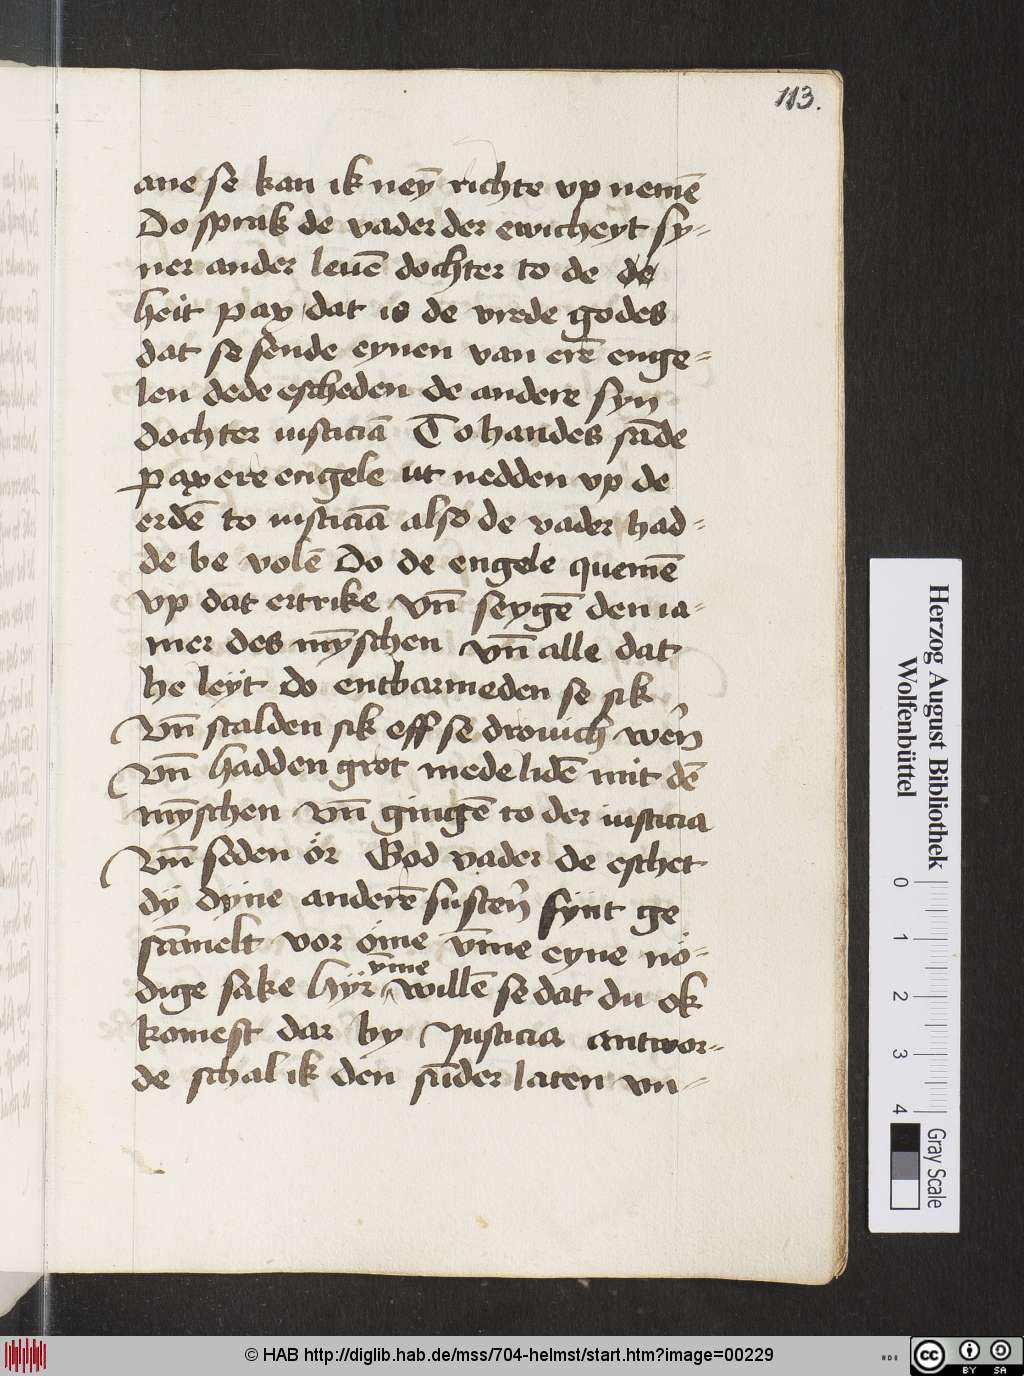 113.
ane se kan ik neÿ richte vp nemē
Do sprak de vader der ewicheyt sy-
ner ander leuē dochter to de de
heit pax dat is de vrede godes
dat se sende eynen van erē enge-
len dede escheden de andere syn
dochter iusticiā To handes sāde
pax ere engele ut nedden vp de
erdē to iusticiā also de vader had-
de be volē Do de engele quemē
vp dat ertrike vn̄ seygē den ia-
mer des mȳschen vn̄ alle dat
he leyt do entbarmeden se sik
vn̄ stalden sik eff se drouich wern̄
vn̄ hadden grot mede lidē mit dē
mȳschen vn̄ gingē to der iusticia
vn̄ seden ör God vader de eschet
dÿ dyne anderē sustern̄ synt ge
sāmelt vor öme v̄me eyne nö-
dige sake hÿr v̄me willē se dat du ok
komest dar by Justicia antwor-
de schal ik den sūder laten vn-
Herzog August Bibliothek
Wolfenbüttel
0
1
2
3
4
Gray Scale
© HAB http://diglib.hab.de/mss/704-helmst/start.htm?image=00229
HAB
cc BY SA